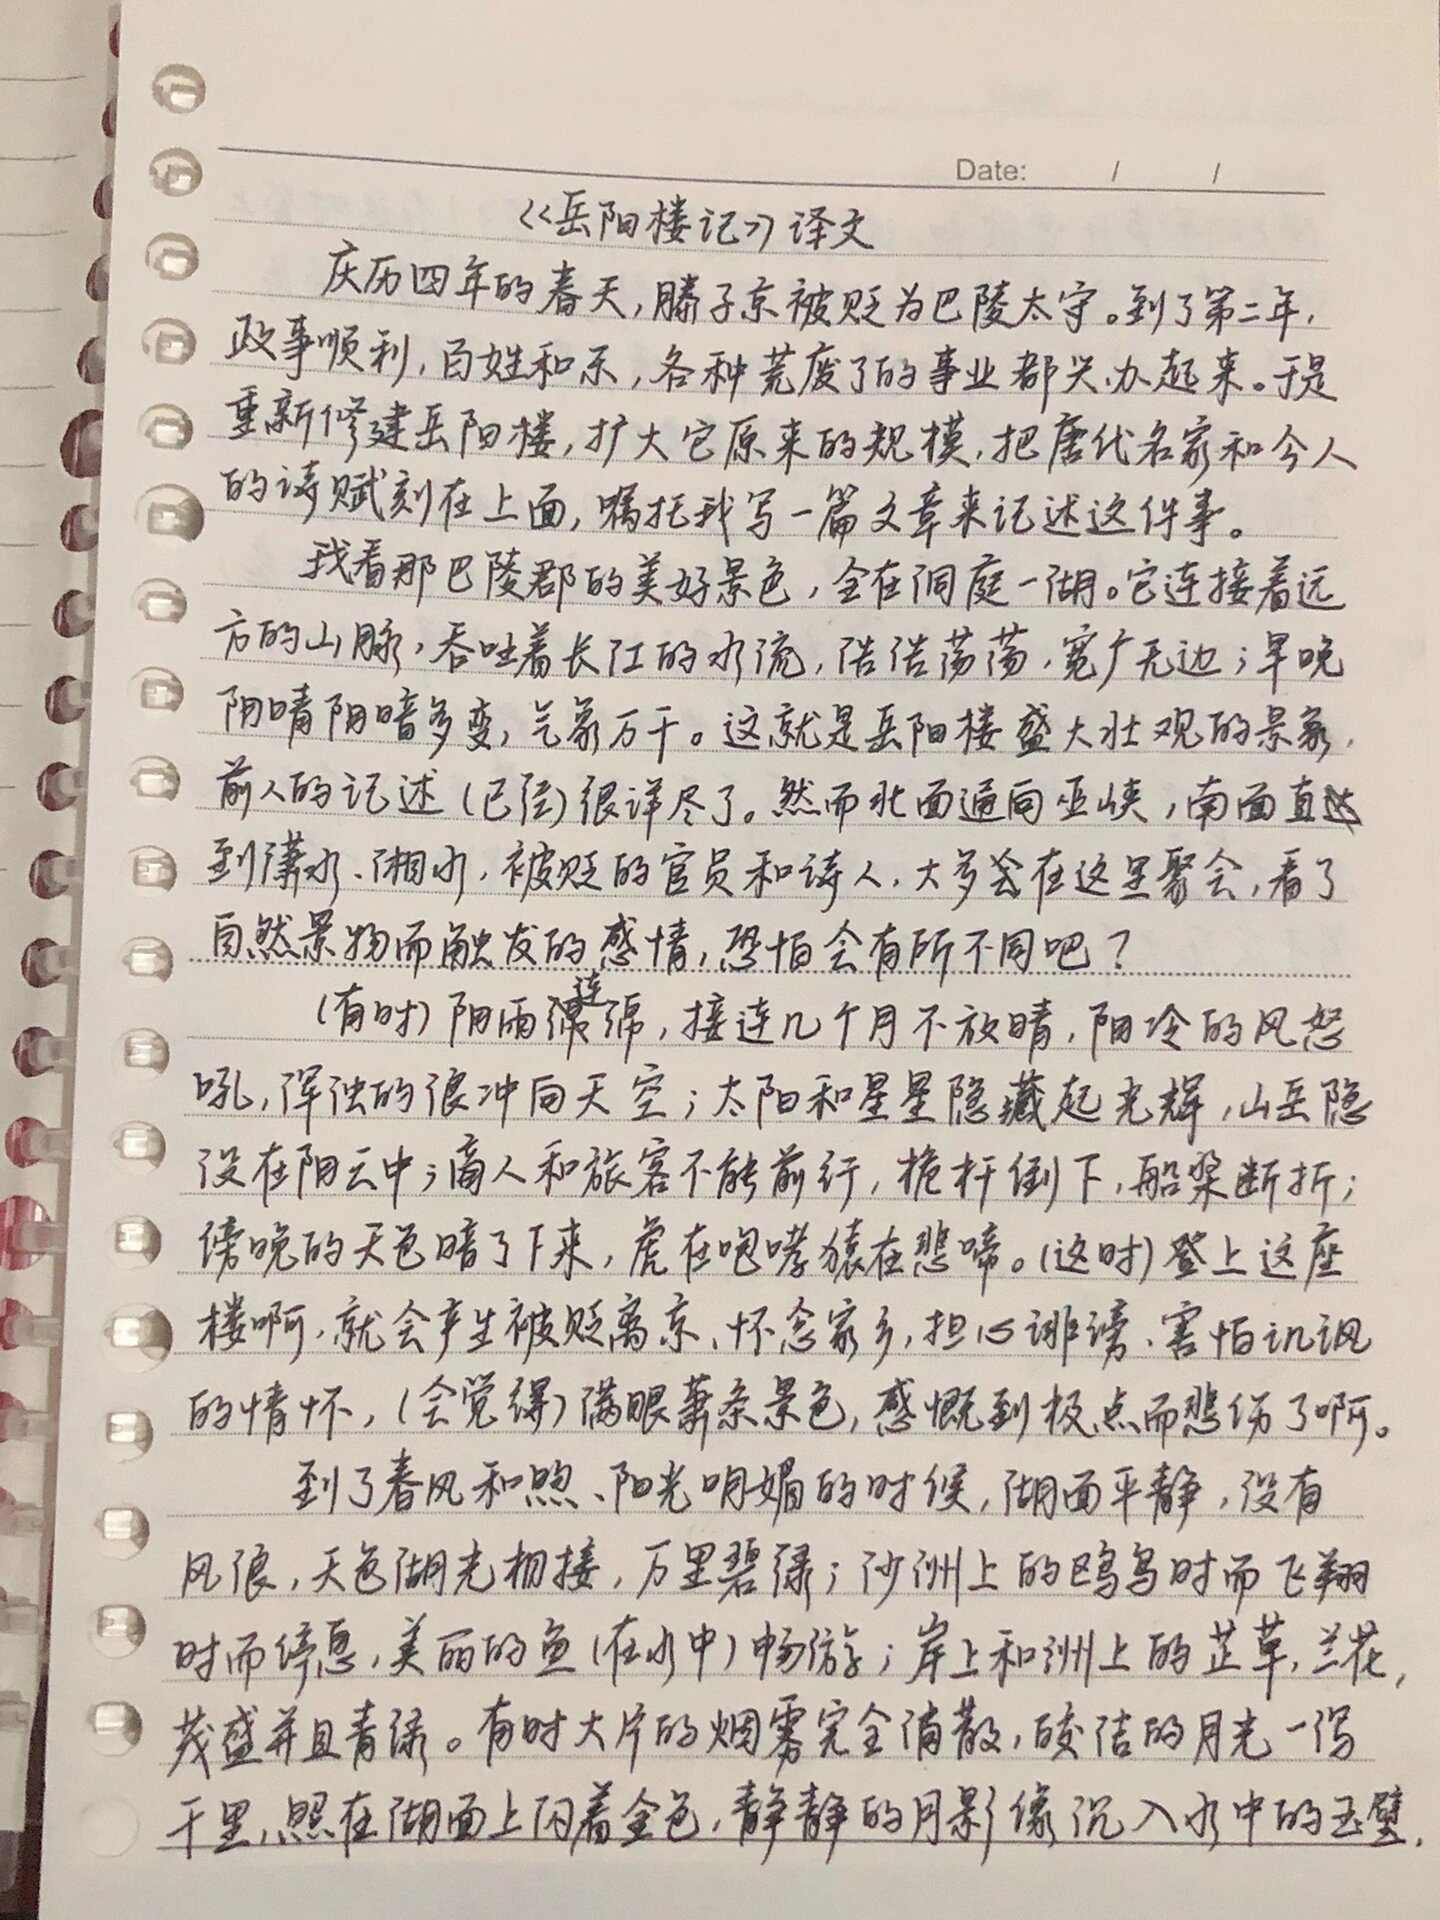 Date: / /
《岳阳楼记》译文
庆历四年的春天，滕子京被贬为巴陵太守。到了第二年，
政事顺利，百姓和乐，各种荒废了的事业都兴办起来。于是
重新修建岳阳楼，扩大它原来的规模，把唐代名家和今人
的诗赋刻在上面，嘱托我写一篇文章来记述这件事。
我看那巴陵郡的美好景色，全在洞庭一湖。它连接着远
方的山脉，吞吐着长江的水流，浩浩荡荡，宽广无边；早晚
阴晴阴暗多变，气象万千。这就是岳阳楼盛大壮观的景象，
前人的记述（已经）很详尽了。然而北面通向巫峡，南面直达
到潇水、湘水，被贬的官员和诗人，大多会在这里聚会，看了
自然景物而触发的感情，恐怕会有所不同吧？
（有时）阴雨连绵，接连几个月不放晴，阴冷的风怒
吼，浑浊的浪冲向天空；太阳和星星隐藏起光辉，山岳隐
没在阴云中；商人和旅客不能前行，桅杆倒下，船桨断折；
傍晚的天色暗了下来，虎在咆哮猿在悲啼。（这时）登上这座
楼啊，就会产生被贬离京、怀念家乡，担心诽谤、害怕讥讽
的情怀，（会觉得）满眼萧条景色，感慨到极点而悲伤了啊。
到了春风和煦、阳光明媚的时候，湖面平静，没有
风浪，天色湖光相接，万里碧绿；沙洲上的鸥鸟时而飞翔
时而停息，美丽的鱼（在水中）畅游；岸上和洲上的芷草，兰花，
茂盛并且青绿。有时大片的烟雾完全消散，皎洁的月光一泻
千里，照在湖面上闪着金色，静静的月影像沉入水中的玉璧，